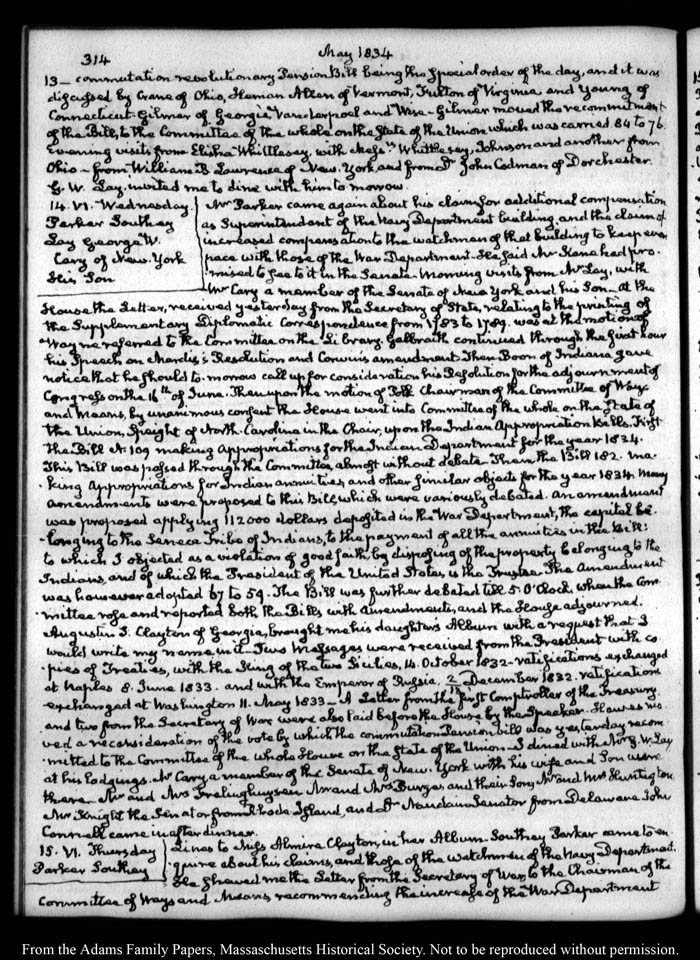 314
May 1834
13 — commutation revolutionary Pension Bill being the special order of the day, and it was
discussed by Crane of Ohio, Heman Allen of Vermont, Fulton of Virginia and Young of
Connecticut. Gilmer of Georgia Vanderpoel and Wise — Gilmer moved the recommitment
of the Bill, to the Committee of the whole on the State of the Union which was carried 84 to 76.
Evening visits from Elisha Whittlesey, with Mess.rs Whittlesey, Johnson and another from
Ohio — from William B Lawrence of New-York and from Dr John Codman of Dorchester.
G. W. Lay, invited me to dine with him to morrow.
14. VI. Wednesday.
Parker Southey
Lay George W.
Cary of New-York
His Son
Mr Parker came again about his claim for additional compensation
as Superintendant of the Navy Department building, and the claim of
increased compensation to the watchman of that building to keep even
pace with those of the War Department. He said Mr Kane had pro-
-mised to see to it in the Senate. Morning visits from Mr Lay, with
Mr Cary a member of the Senate of New York and his Son — at the
House the Letter, received yesterday from the Secretary of State, relating to the printing of
the Supplementary Diplomatic Correspondence from 1783 to 1789. was at the motion of
Wayne referred to the Committee on the Library. Galbraith continued through the first hour
his Speech on Mardis's Resolution and Corwin's amendment. Then Boon of Indiana gave
notice that he should to-morrow call up for consideration his Resolution for the adjournment of
Congress on the 16th of June. Then upon the motion of Polk Chairman of the Committee of Ways
and Means, by unanimous consent the House went into Committee of the whole on the State of
the Union, Speight of North-Carolina in the Chair, upon the Indian Appropriation Bills. First
the Bill N. 109 making Appropriations for the Indian Department for the year 1834.
This Bill was passed through the Committee, almost without debate. Then the Bill 182. ma-
-king Appropriations for Indian annuities, and other similar objects for the year 1834. Many
amendments were proposed to this Bill, which were variously debated. An amendment
was proposed applying 112000 dollars deposited in the War Department, the capital be-
-longing to the Seneca Tribe of Indians, to the payment of all the annuities in the Bill:
to which I objected as a violation of good faith by disposing of the property belonging to the
Indians, and of which the President of the United States, is the Trustee. The Amendment
was however adopted 67 to 59. The Bill was further debated till 5. O'Clock, when the Com-
-mittee rose and reported both the Bills with Amendments, and the House adjourned.
Augustin S. Clayton of Georgia, brought me his daughter's Album with a request that I
would write my name in it — Two Messages were received from the President with co-
-pies of Treaties, with the King of the two Sicilies, 14. October 1832 — ratifications exchanged
at Naples 8. June 1833. and with the Emperor of Russia, December 1832. ratifications
exchanged at Washington 11. May 1833 — A Letter from the first Comptroller of the Treasury,
and two from the Secretary of War were also laid before the House by the Speaker. Hawes mo-
-ved a reconsideration of the vote by which the commutation Pension bill was yesterday recom-
-mitted to the Committee of the whole House on the State of the Union — I dined with Mr G. W. Lay
at his lodgings. Mr Cary a member of the Senate of New-York with his wife and Son were
there. Mr and Mrs Frelinghuysen Mr and Mrs Burges and their Son, Mr and Mrs Huntington
Mr Knight the Senator from Rhode-Island, and Dr Naudain Senator from Delaware. John
Connell came in after dinner.
15. VI. Thursday
Parker Southey
Lines to Miss Almira Clayton, in her Album. Southey Parker came to en-
-quire about his claims, and those of the watchmen of the Navy Department.
He shewed me the Letter from the Secretary of War, to the Chairman of the
Committee of Ways and Means, recommending the increase of the War Department
From the Adams Family Papers, Massachusetts Historical Society. Not to be reproduced without permission.